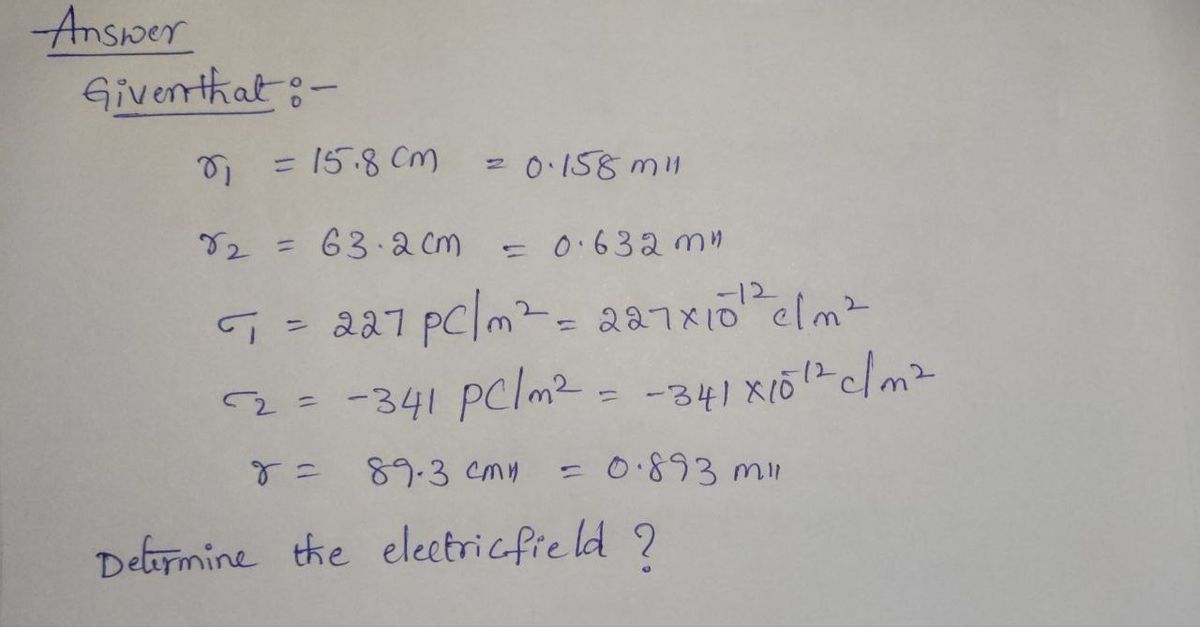 Answer
Given that :-
r₁ = 15.8 cm = 0.158 m
r₂ = 63.2 cm = 0.632 m
σ₁ = 227 pC/m² = 227×10⁻¹² c/m²
σ₂ = -341 pC/m² = -341 ×10⁻¹² c/m²
r = 89.3 cm = 0.893 m
Determine the electricfield ?